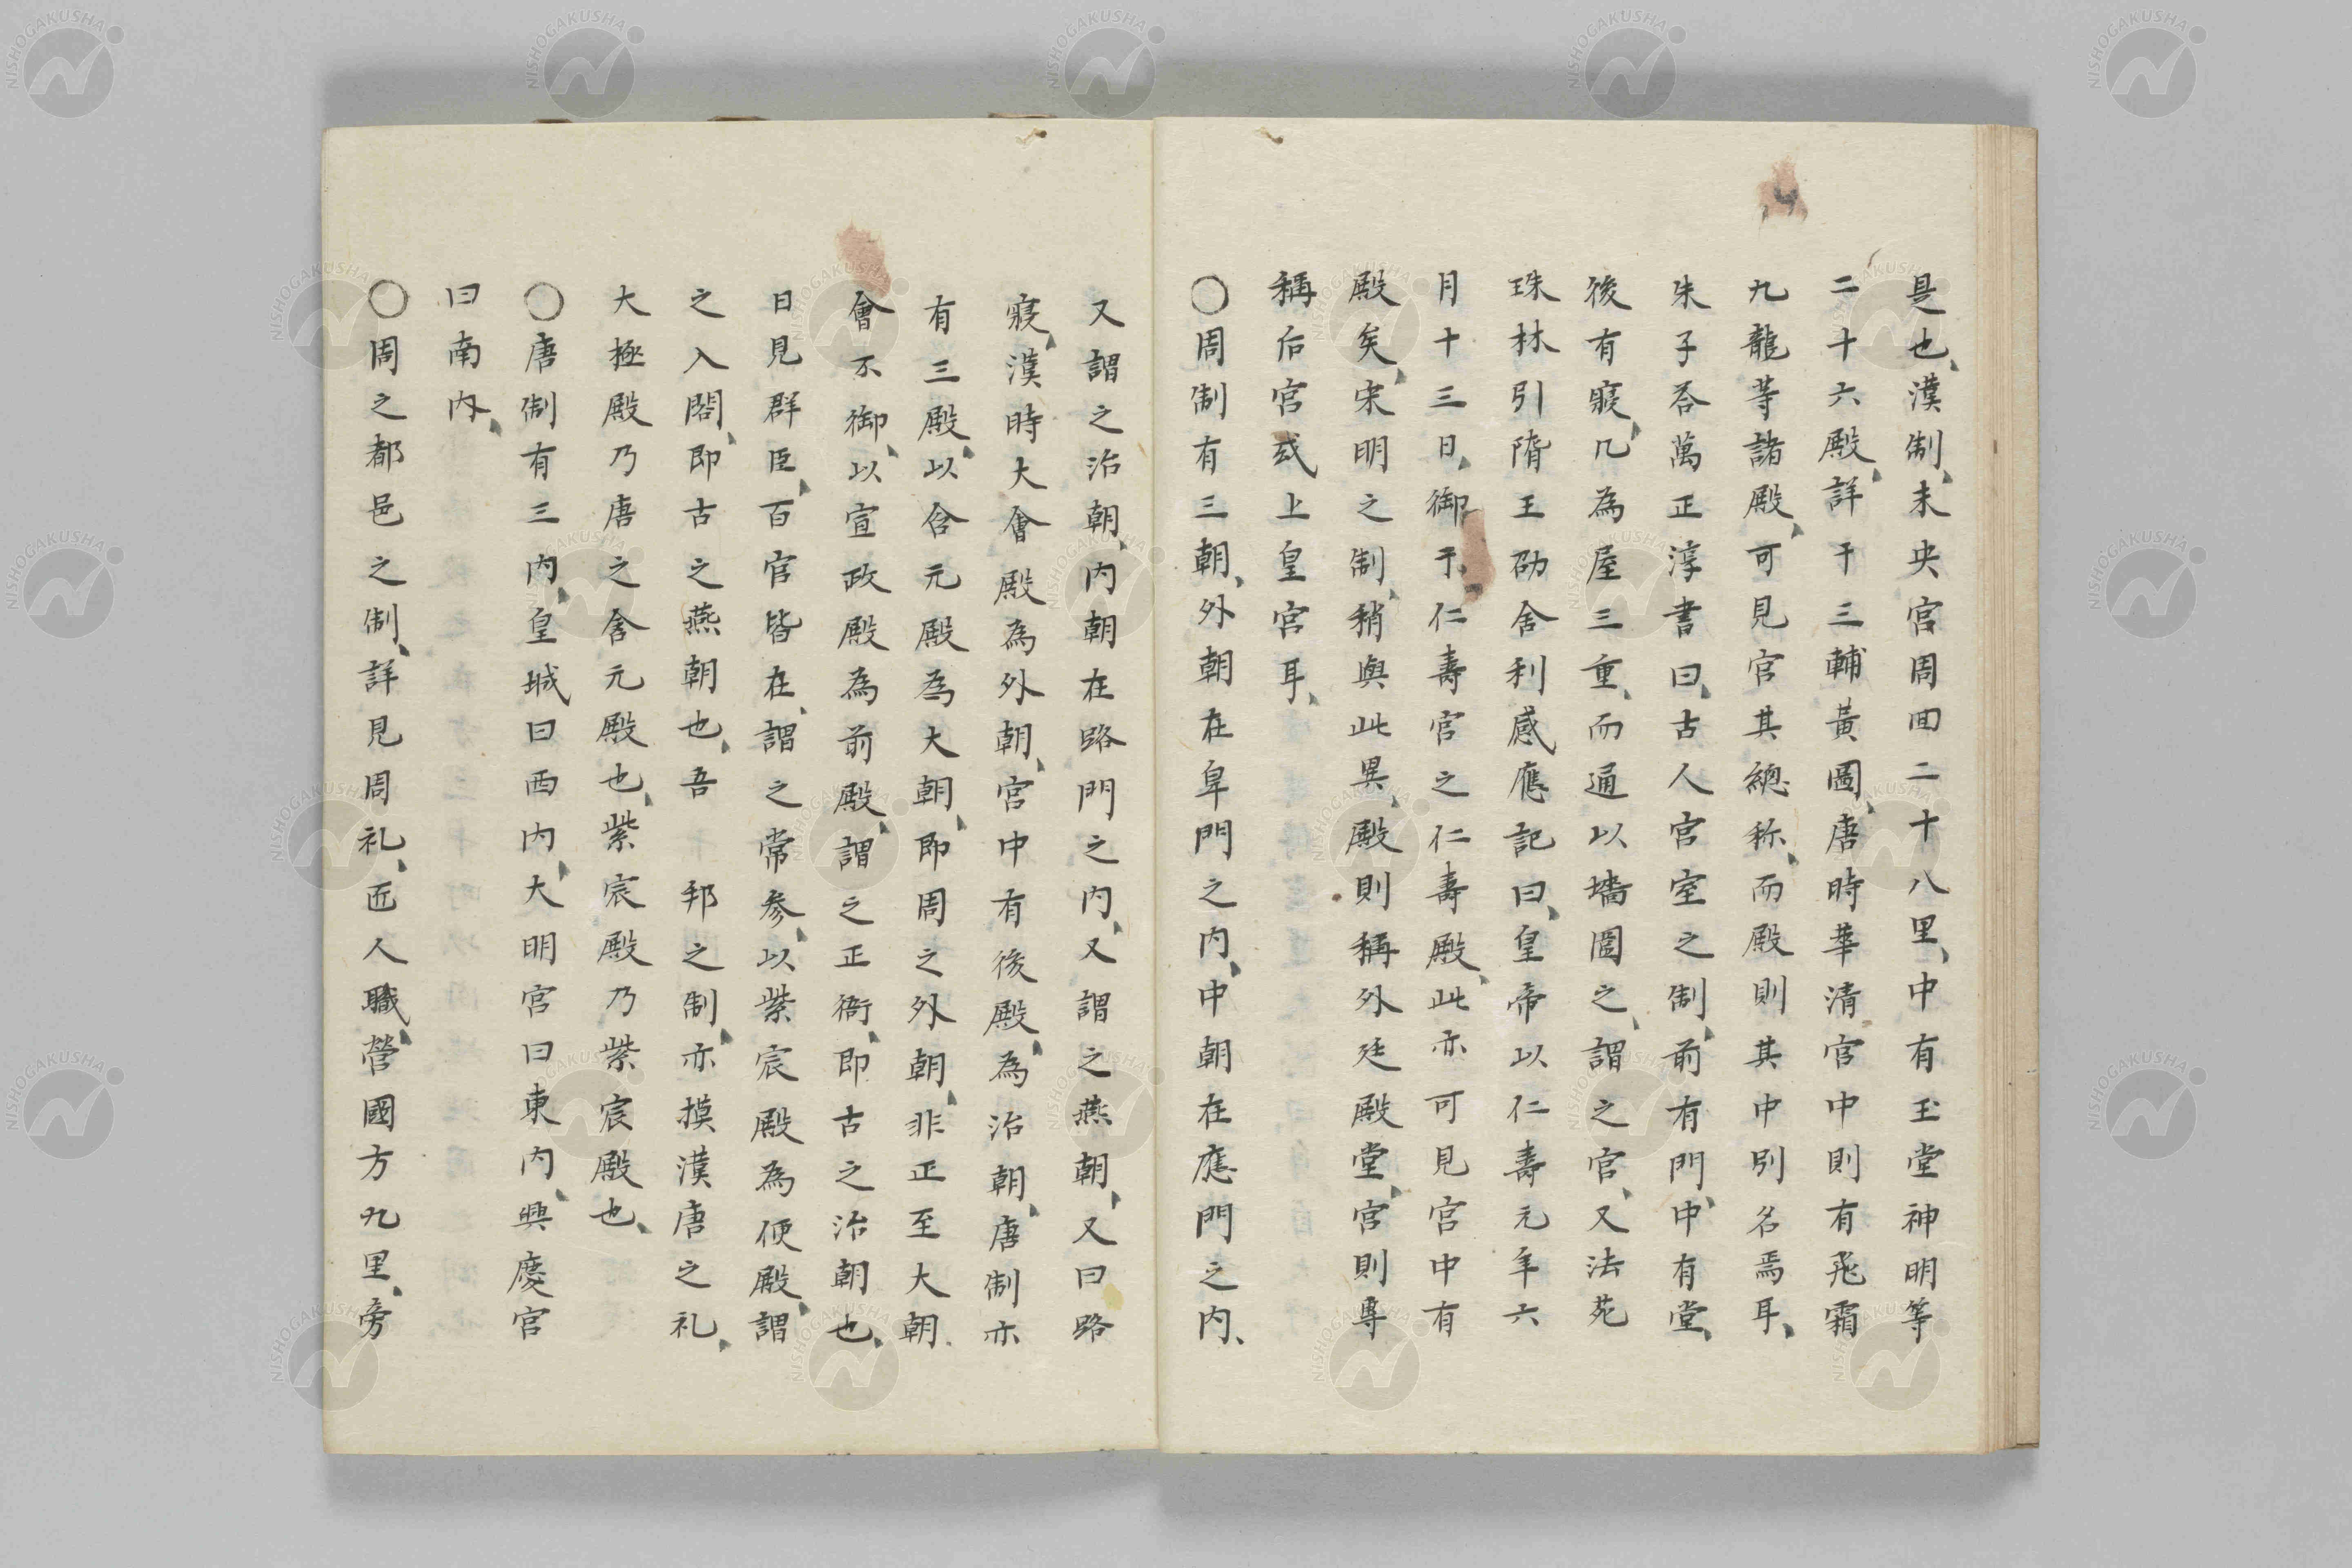 是也、漢制、未央宮周囬二十八里、中有玉堂神明等
二十六殿、詳于三輔黃圖、唐時華清宮中則有飛霜
九龍等諸殿、可見宮其總称、而殿則其中別名焉耳、
朱子荅萬正淳書曰、古人宮室之制、前有門、中有堂、
後有寢、凡為屋三重、而通以墻圍之、謂之宮、又法苑
珠林引隋王劭舍利感應記曰、皇帝以仁壽元年六
月十三日、御于仁壽宮之仁壽殿、此亦可見宮中有
殿矣、宋明之制、稍與此異、殿則稱外廷殿堂、宮則專
稱后宮或上皇宮耳、
〇周制有三朝、外朝在皐門之内、中朝在應門之内、
又謂之治朝、内朝在路門之内、又謂之燕朝、又曰路
寢、漢時大會殿為外朝、宮中有後殿、為治朝、唐制亦
有三殿、以含元殿為大朝、即周之外朝、非正至大朝
會不御、以宣政殿為前殿、謂之正衙、即古之治朝也、
日見群臣、百官皆在、謂之常参、以紫宸殿為便殿、謂
之入閤、即古之燕朝也、吾 邦之制、亦摸漢唐之礼、
大極殿乃唐之含元殿也、紫宸殿乃紫宸殿也、
〇唐制有三内、皇城曰西内、大明宮曰東内、興慶宮
曰南内、
〇周之都邑之制、詳見周礼、匠人職、營國方九里、旁
NISHOGAKUSHA